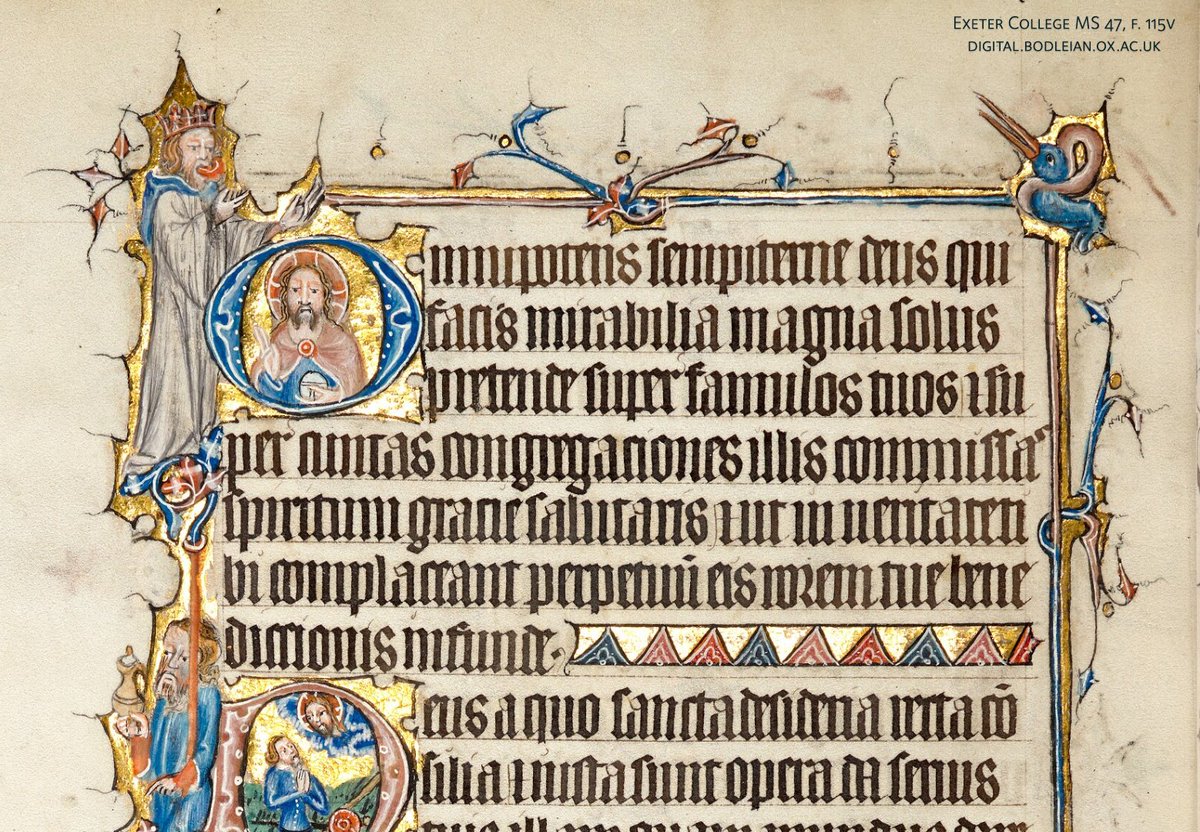 Exeter College MS 47, f. 115v
digital.bodleian.ox.ac.uk
Omnipotens sempiterne deus qui
facis mirabilia magna solus
pretende super famulos tuos ⁊ su
per cunctas congregaciones illis commissas
spiritum gracie salutaris ⁊ ut in ueritate ti
bi complaceant perpetuū eis rorem tue bene
diccionis infunde.
Deus a quo sancta desideria recta cō
silia ⁊ iusta sunt opera da seruis
tuis illam quam mundus